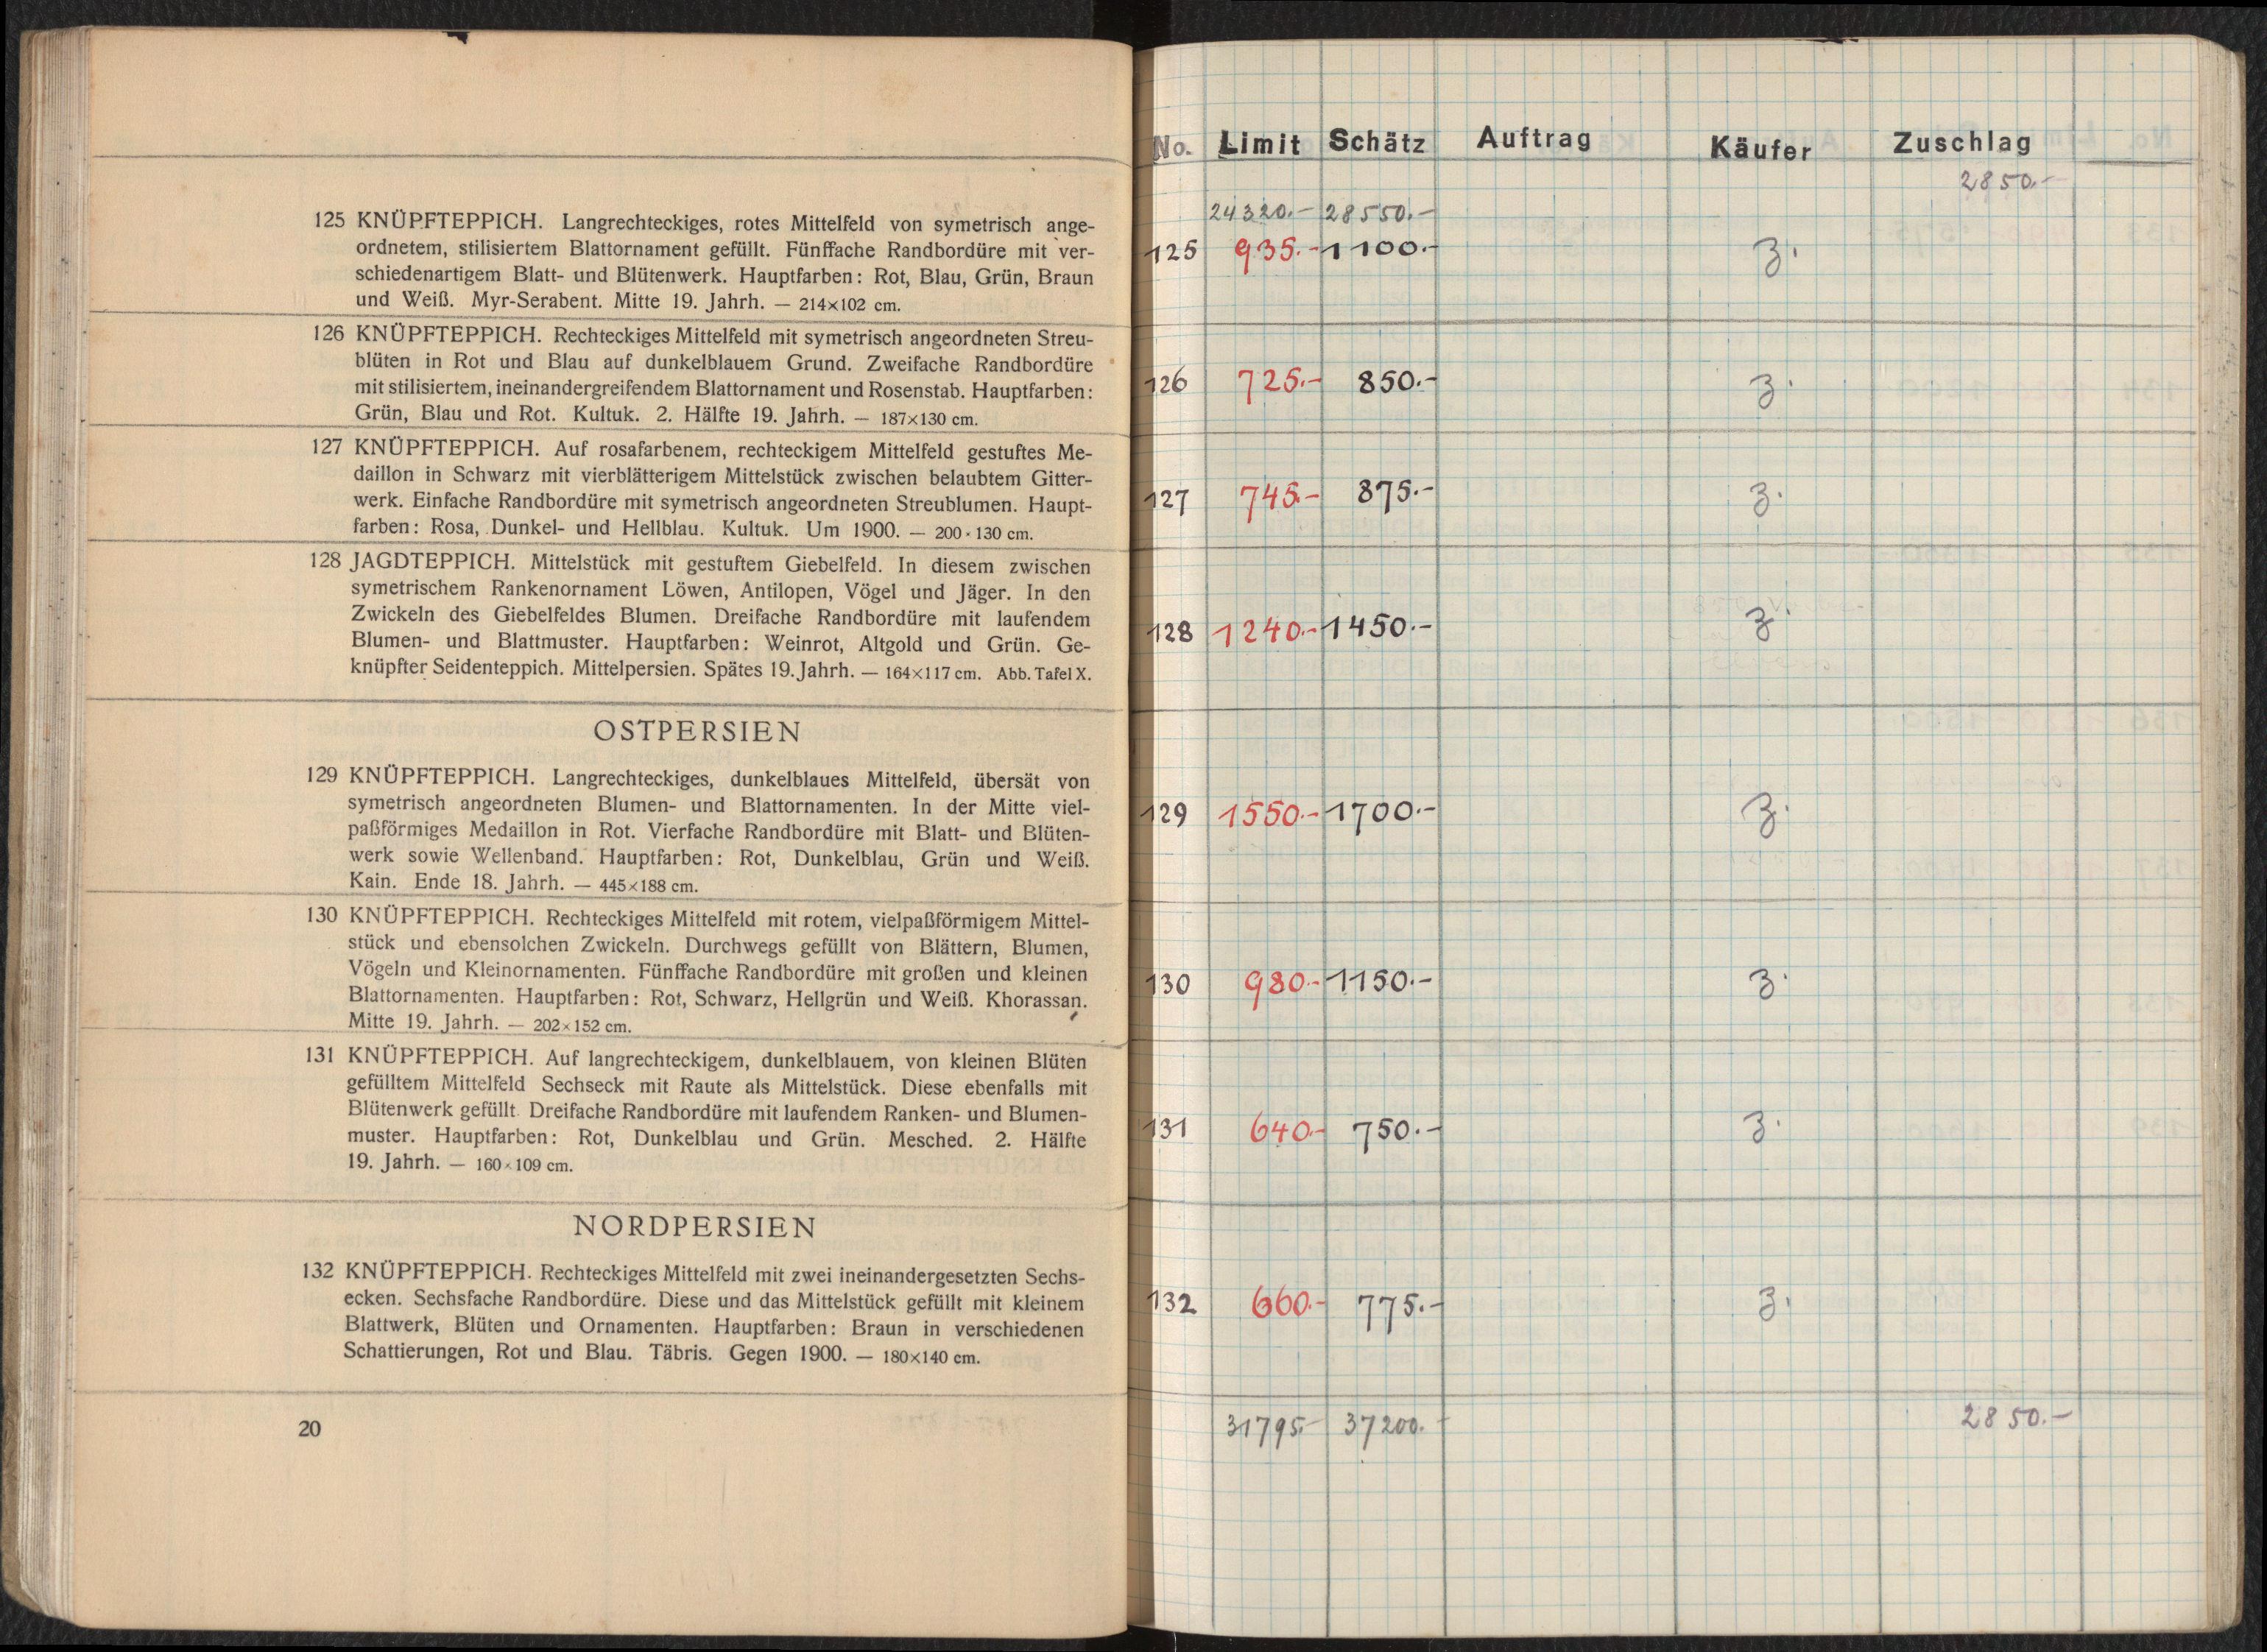 125 KNÜPFTEPPICH. Langrechteckiges, rotes Mittelfeld von symetrisch ange-
ordnetem, stilisiertem Blattornament gefüllt. Fünffache Randbordüre mit ver-
schiedenartigem Blatt- und Blütenwerk. Hauptfarben: Rot, Blau, Grün, Braun
und Weiß. Myr-Serabent. Mitte 19. Jahrh. — 214×102 cm.
126 KNÜPFTEPPICH. Rechteckiges Mittelfeld mit symetrisch angeordneten Streu-
blüten in Rot und Blau auf dunkelblauem Grund. Zweifache Randbordüre
mit stilisiertem, ineinandergreifendem Blattornament und Rosenstab. Hauptfarben:
Grün, Blau und Rot. Kultuk. 2. Hälfte 19. Jahrh. — 187×130 cm.
127 KNÜPFTEPPICH. Auf rosafarbenem, rechteckigem Mittelfeld gestuftes Me-
daillon in Schwarz mit vierblätterigem Mittelstück zwischen belaubtem Gitter-
werk. Einfache Randbordüre mit symetrisch angeordneten Streublumen. Haupt-
farben: Rosa, Dunkel- und Hellblau. Kultuk. Um 1900. — 200×130 cm.
128 JAGDTEPPICH. Mittelstück mit gestuftem Giebelfeld. In diesem zwischen
symetrischem Rankenornament Löwen, Antilopen, Vögel und Jäger. In den
Zwickeln des Giebelfeldes Blumen. Dreifache Randbordüre mit laufendem
Blumen- und Blattmuster. Hauptfarben: Weinrot, Altgold und Grün. Ge-
knüpfter Seidenteppich. Mittelpersien. Spätes 19. Jahrh. — 164×117 cm. Abb. Tafel X.
OSTPERSIEN
129 KNÜPFTEPPICH. Langrechteckiges, dunkelblaues Mittelfeld, übersät von
symetrisch angeordneten Blumen- und Blattornamenten. In der Mitte viel-
paßförmiges Medaillon in Rot. Vierfache Randbordüre mit Blatt- und Blüten-
werk sowie Wellenband. Hauptfarben: Rot, Dunkelblau, Grün und Weiß.
Kain. Ende 18. Jahrh. — 445×188 cm.
130 KNÜPFTEPPICH. Rechteckiges Mittelfeld mit rotem, vielpaßförmigem Mittel-
stück und ebensolchen Zwickeln. Durchwegs gefüllt von Blättern, Blumen,
Vögeln und Kleinornamenten. Fünffache Randbordüre mit großen und kleinen
Blattornamenten. Hauptfarben: Rot, Schwarz, Hellgrün und Weiß. Khorassan.
Mitte 19. Jahrh. — 202×152 cm.
131 KNÜPFTEPPICH. Auf langrechteckigem, dunkelblauem, von kleinen Blüten
gefülltem Mittelfeld Sechseck mit Raute als Mittelstück. Diese ebenfalls mit
Blütenwerk gefüllt. Dreifache Randbordüre mit laufendem Ranken- und Blumen-
muster. Hauptfarben: Rot, Dunkelblau und Grün. Mesched. 2. Hälfte
19. Jahrh. — 160×109 cm.
NORDPERSIEN
132 KNÜPFTEPPICH. Rechteckiges Mittelfeld mit zwei ineinandergesetzten Sechs-
ecken. Sechsfache Randbordüre. Diese und das Mittelstück gefüllt mit kleinem
Blattwerk, Blüten und Ornamenten. Hauptfarben: Braun in verschiedenen
Schattierungen, Rot und Blau. Täbris. Gegen 1900. — 180×140 cm.
20
No. Limit Schätz Auftrag Käufer Zuschlag
2850.-
24320.- 28550.-
125 935.- 1100.- z.
126 725.- 850.- z.
127 745.- 875.- z.
128 1240.- 1450.- z.
129 1550.- 1700.- z.
130 980.- 1150.- z.
131 640.- 750.- z.
132 660.- 775.- z.
31795.- 37200.- 2850.-